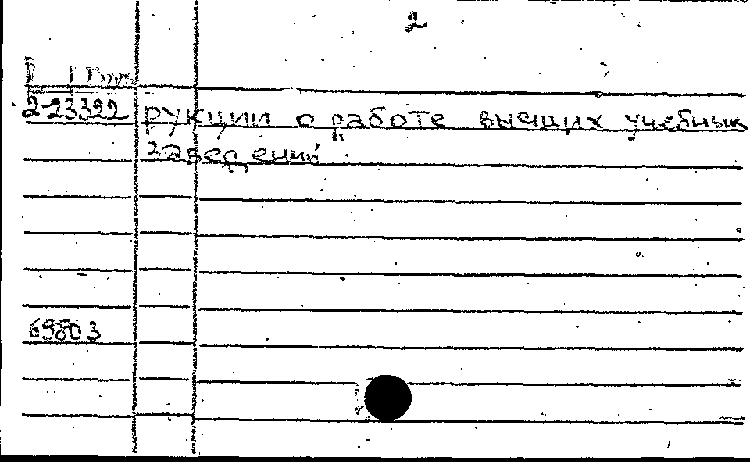 2
2-23322 рукции о работе высших учебных
заведений
69803